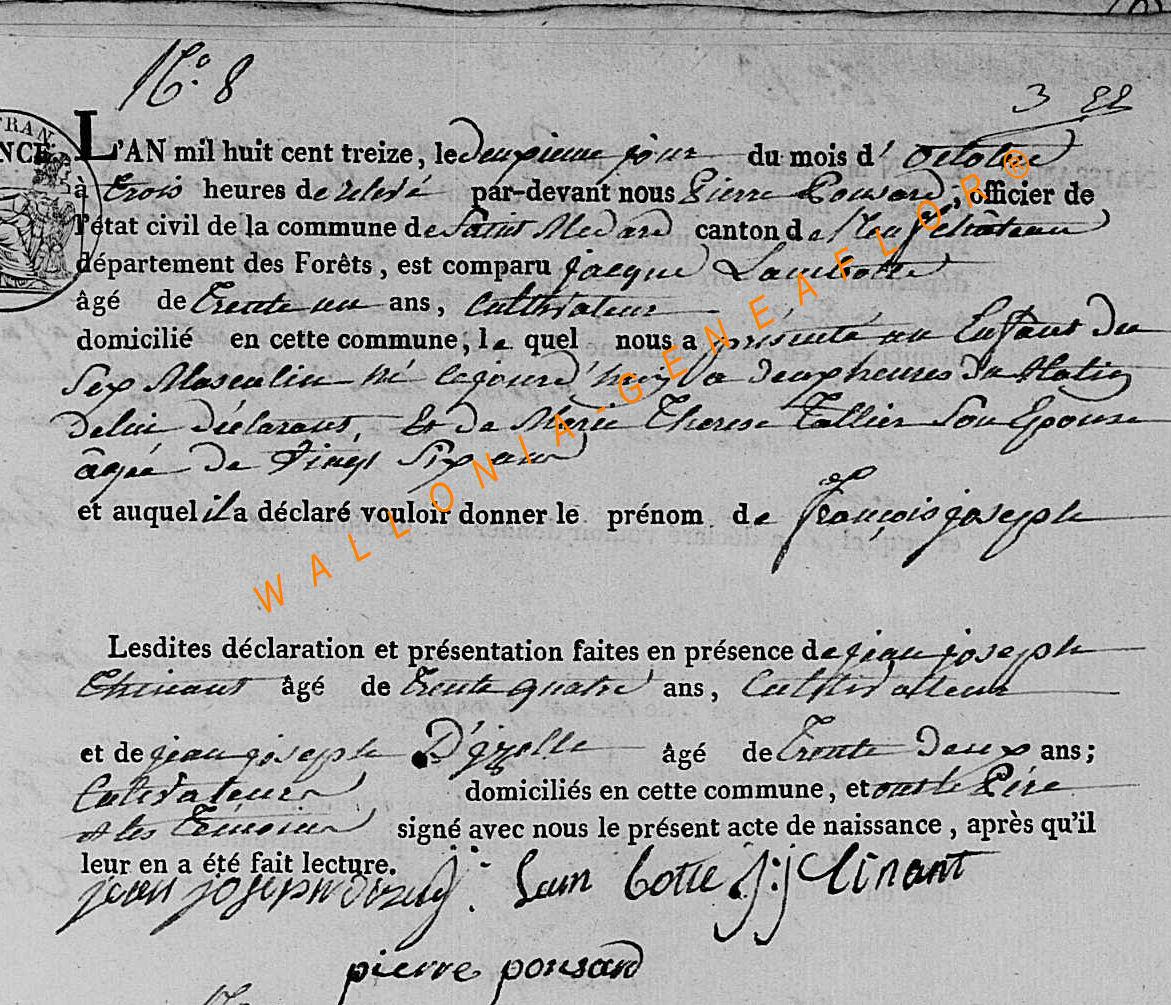 N.° 8
3 88
FRAN
NCE
L'AN mil huit cent treize, le deuxieme jour du mois d' octobre
à trois heures de relevé par-devant nous Pierre Ponsard, officier de
l'état civil de la commune de Saint Medard canton de Neufchâteau
département des Forêts, est comparu jacque Lambotte
âgé de trente un ans, cultivateur
domicilié en cette commune, le quel nous a présenté un Enfant du
Sex Masculin né cejourd'huy a deux heures du Matin
De lui déclarant, Et de Marie Therese Tallier Son Epouse
âgée de vingt Six ans
et auquel il a déclaré vouloir donner le prénom de françois joseph
WALLONIA-GENEAFLOR®
Lesdites déclaration et présentation faites en présence de jean joseph
âgé de trente quatre ans, Cultivatteur
et de jean joseph D'izelle âgé de trente Deux ans;
Cultivateurs domiciliés en cette commune, et ont le Père
et les Temoins signé avec nous le présent acte de naissance, après qu'il
leur en a été fait lecture.
jean joseph Lam botte j:j Clinant
pierre ponsard